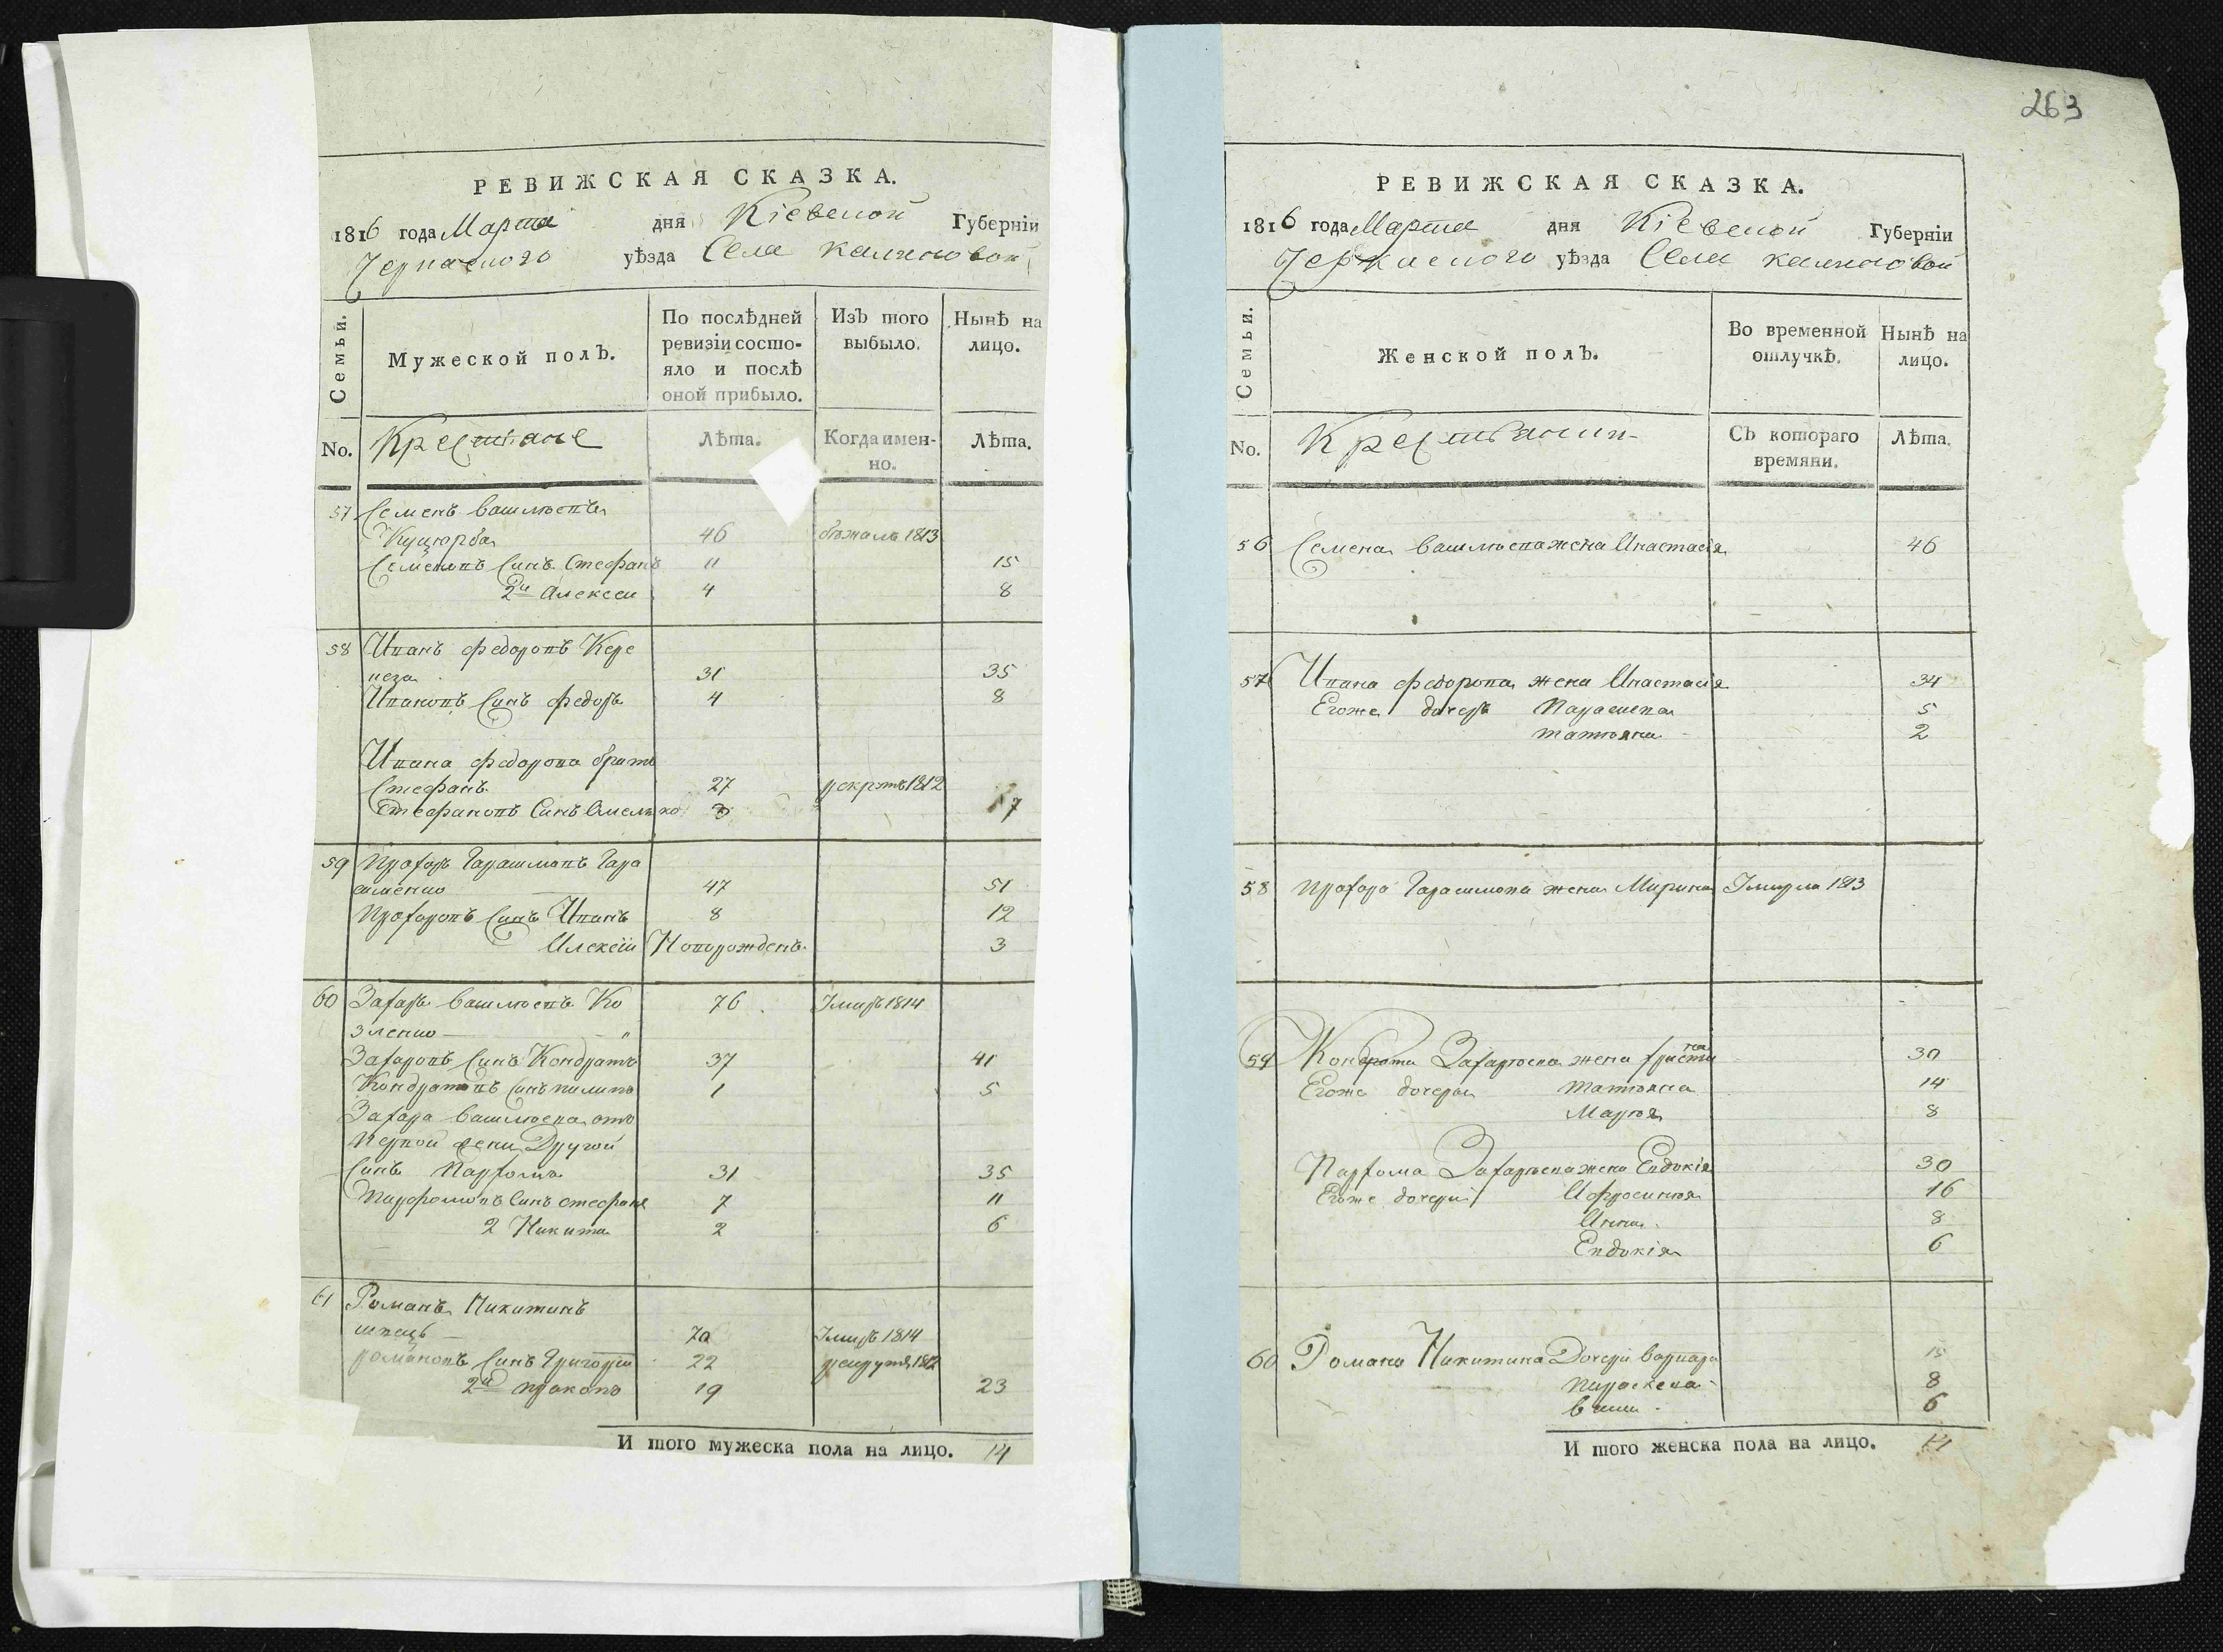 РЕВИЖСКАЯ СКАЗКА.
1816 года Марта дня Кіевской Губерніи
Черкаского уѣзда Села калиновой
Семьи. Мужеской полъ. По послѣдней ревизіи состояло и послѣ оной прибыло. Изъ того выбыло. Нынѣ на лицо.
No. Крестьяне Лѣта. Когда именно. Лѣта.
57 Семенъ Васильевъ
Куцюрба 46 бежалъ 1813
Семеновъ Синъ Стефанъ 11 15
2й Алексеи 4 8
58 Иванъ федоровъ Кере
неза 31 35
Ивановъ Синъ федоръ 4 8
Ивана федорова братъ
Стефанъ 27 рекрутъ 1812
Стефановъ Синъ Омелько 3 7
59 Прохоръ Гарасимовъ Гара
сименко 47 51
Прохоровъ Синъ Иванъ 8 12
Алексій Новорожденъ 3
60 Захаръ Васильевъ Ко 76 Умиръ 1814
зленко "
Захаровъ Синъ Кондратъ 37 41
Кондратовъ Синъ пилипъ 1 5
Захара Васильева отъ
Первой жени Другой
Синъ Пархомъ 31 35
Парфомовъ Синъ стефанъ 7 11
2 Никита 2 6
61 Романъ Никитинъ
швецъ 70 Умиръ 1814
романовъ Синъ Григорій 22 рекрутъ 1812
2й прокопъ 19 23
И того мужеска пола на лицо. 14
263
РЕВИЖСКАЯ СКАЗКА.
1816 года Марта дня Кіевской Губерніи
Черкаского уѣзда Села калиновой
Семьи. Женской полъ. Во временной отлучкѣ. Нынѣ на лицо.
No. Съ котораго времяни. Лѣта.
56 Семена Васильева жена Анастасія 46
57 Ивана федорова жена Анастасія 34
Егоже дочерь Параскева 5
татьяна 2
58 прохора Гарасимова жена Марина Умерла 1813
59 Кондрата Захарьева жена христина 30
Егоже дочери татьяна 14
Марья 8
Пархома Захарьева жена Евдокія 30
Егоже дочери Афросинья 16
Анна 8
Евдокія 6
60 Романа Никитина Дочери варвара 15
параскева 8
6
И того женска пола на лицо. 14